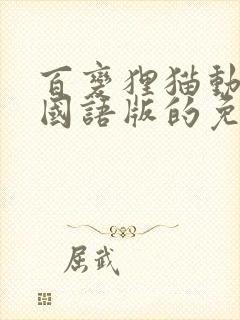 百變狸猫動
國語版的免
屈武